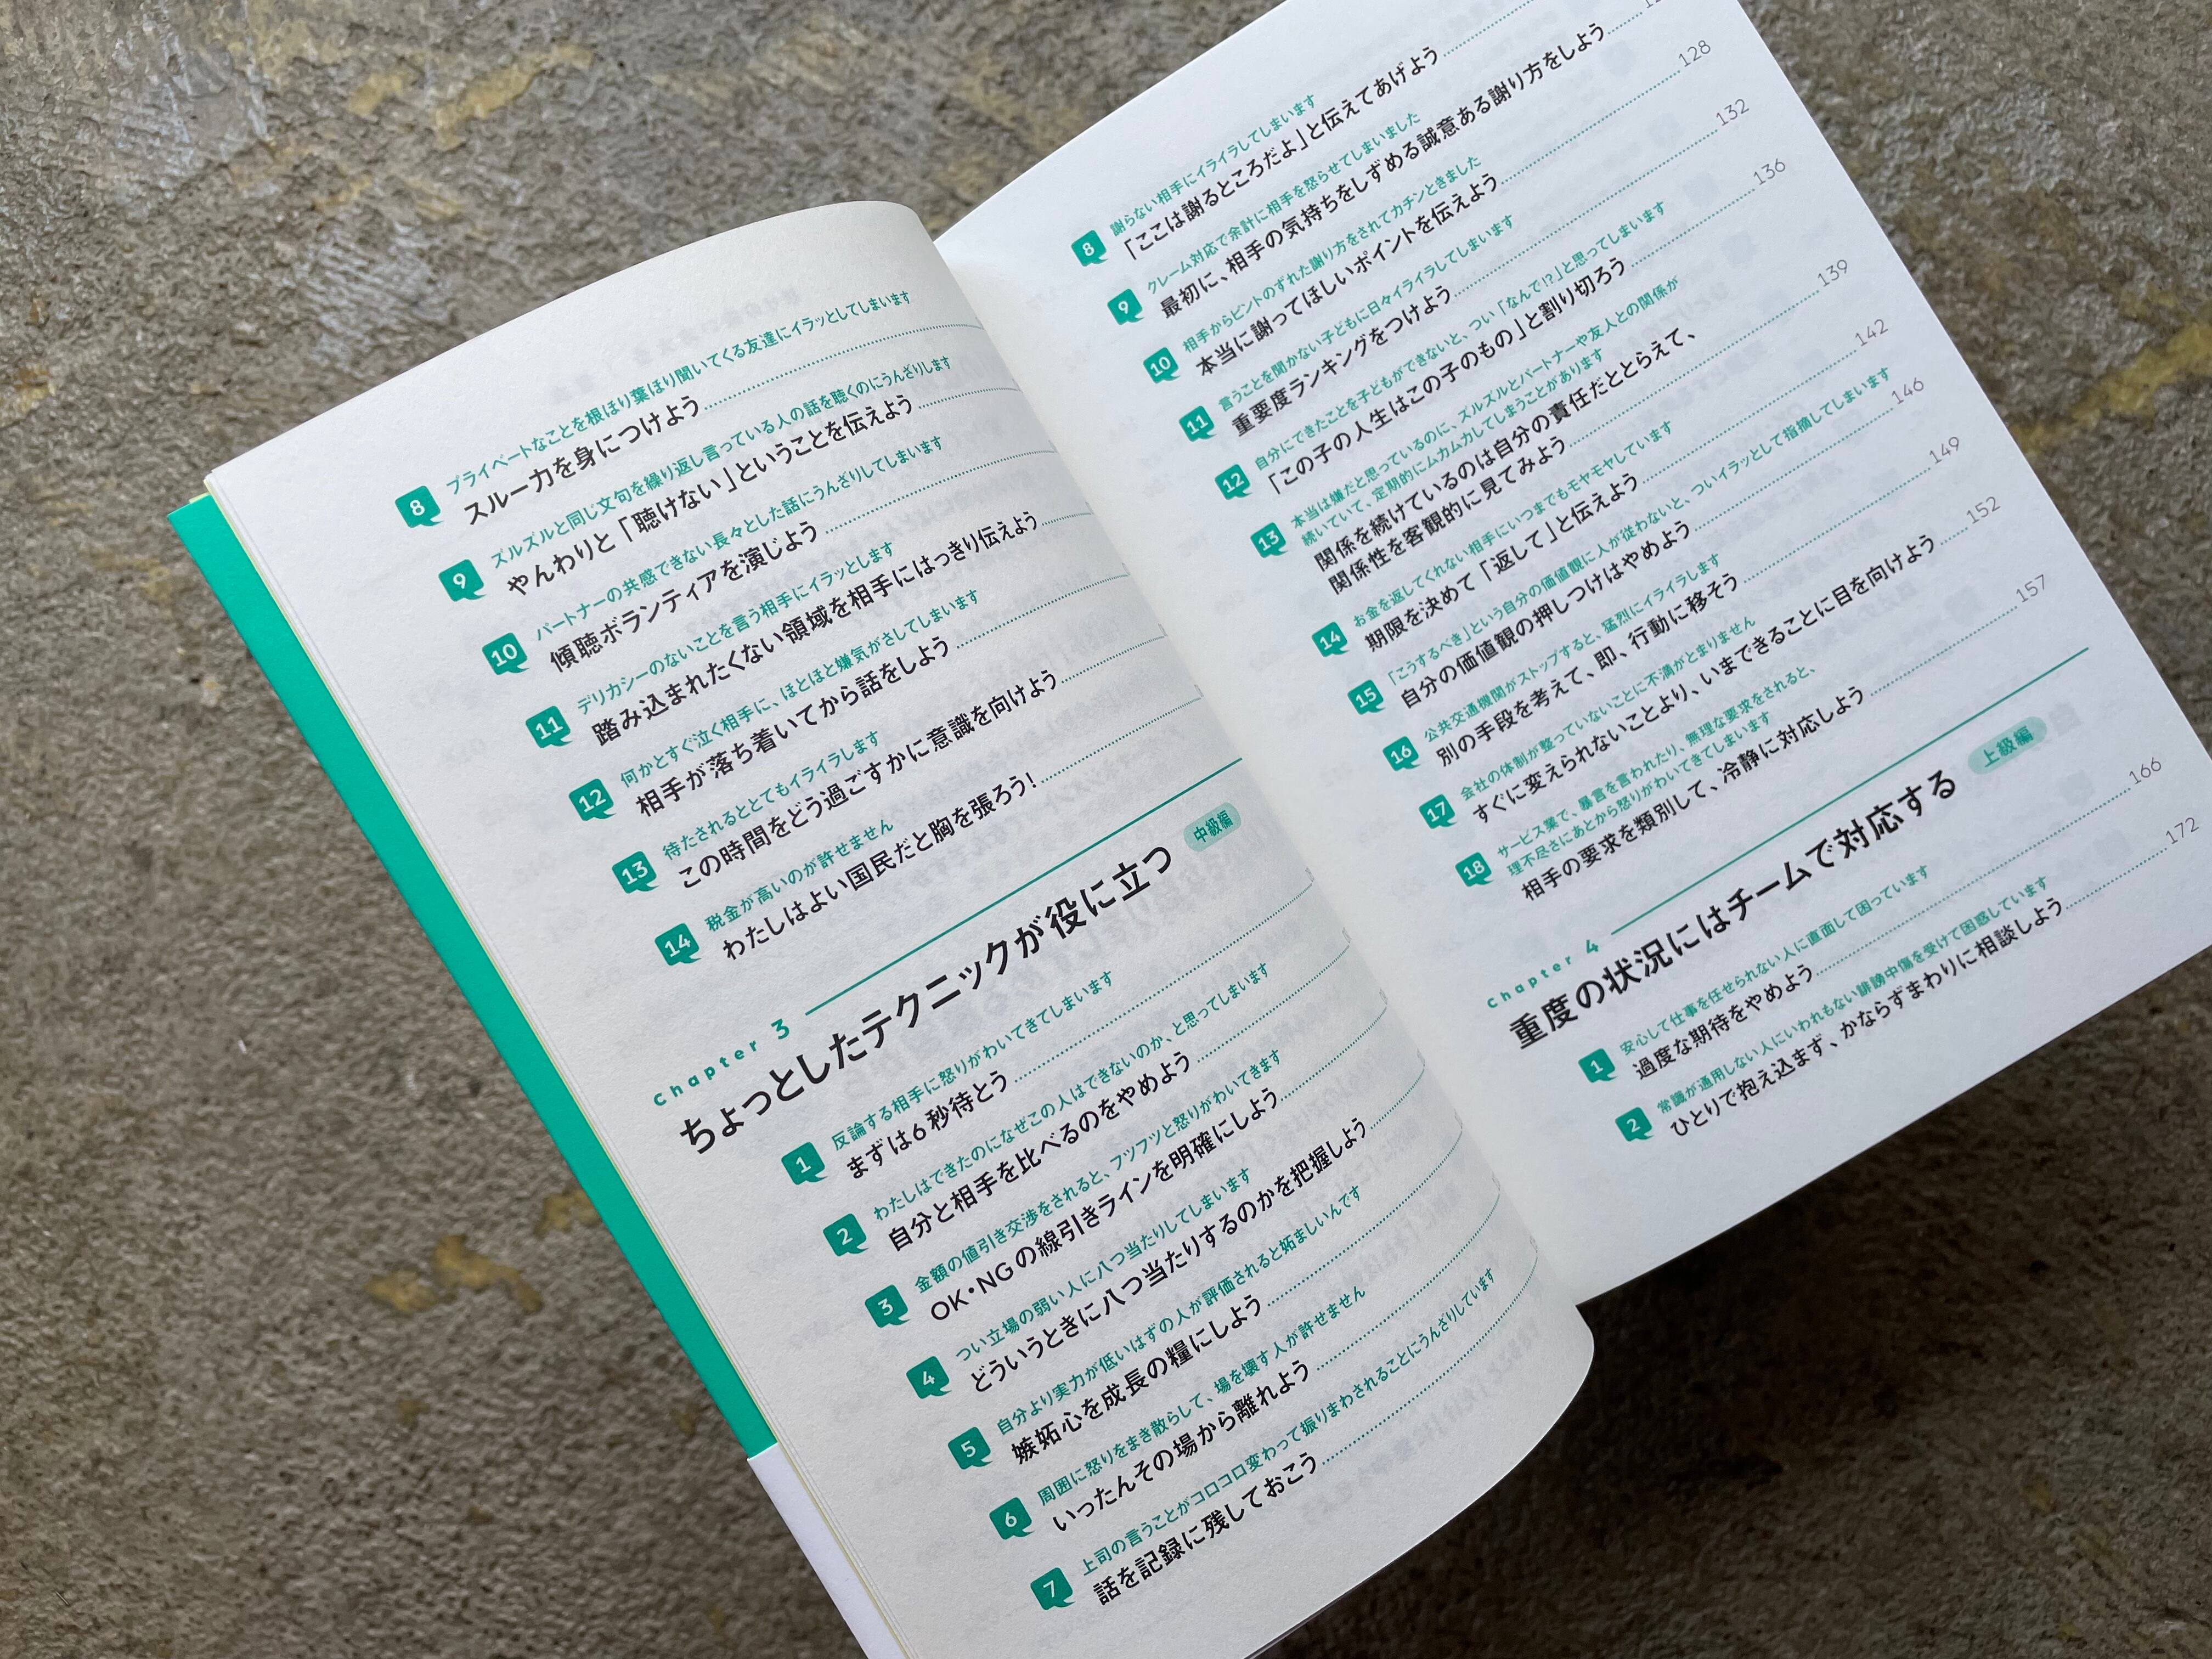 8 プライベートなことを根ほり葉ほり聞いてくる友達にイラッとしてしまいます
スルー力を身につけよう
9 ズルズルと同じ文句を繰り返し言っている人の話を聴くのにうんざりします
やんわりと「聴けない」ということを伝えよう
10 パートナーの共感できない長々とした話にうんざりしてしまいます
傾聴ボランティアを演じよう
11 デリカシーのないことを言う相手にイラッとします
踏み込まれたくない領域を相手にはっきり伝えよう
12 何かとすぐ泣く相手に、ほとほと嫌気がさしてしまいます
相手が落ち着いてから話をしよう
13 待たされるととてもイライラします
この時間をどう過ごすかに意識を向けよう
14 税金が高いのが許せません
わたしはよい国民だと胸を張ろう!
chapter 3
ちょっとしたテクニックが役に立つ 中級編
1 反論する相手に怒りがわいてきてしまいます
まずは6秒待とう
2 わたしはできたのになぜこの人はできないのか、と思ってしまいます
自分と相手を比べるのをやめよう
3 金額の値引き交渉をされると、フツフツと怒りがわいてきます
OK・NGの線引きラインを明確にしよう
4 つい立場の弱い人に八つ当たりしてしまいます
どういうときに八つ当たりするのかを把握しよう
5 自分より実力が低いはずの人が評価されると妬ましいんです
嫉妬心を成長の糧にしよう
6 周囲に怒りをまき散らして、場を壊す人が許せません
いったんその場から離れよう
7 上司の言うことがコロコロ変わって振りまわされることにうんざりしています
話を記録に残しておこう
8 謝らない相手にイライラしてしまいます
「ここは謝るところだよ」と伝えてあげよう
9 クレーム対応で余計に相手を怒らせてしまいました
最初に、相手の気持ちをしずめる誠意ある謝り方をしよう
10 相手からピントのずれた謝り方をされてカチンときました
本当に謝ってほしいポイントを伝えよう 128
11 言うことを聞かない子どもに日々イライラしてしまいます
重要度ランキングをつけよう 132
12 自分にできたことを子どもができないと、つい「なんで!?」と思ってしまいます
「この子の人生はこの子のもの」と割り切ろう 136
13 本当は嫌だと思っているのに、ズルズルとパートナーや友人との関係が
続いていて、定期的にムカムカしてしまうことがあります
関係を続けているのは自分の責任だととらえて、
関係性を客観的に見てみよう 139
14 お金を返してくれない相手にいつまでもモヤモヤしています
期限を決めて「返して」と伝えよう 142
15 「こうするべき」という自分の価値観に人が従わないと、ついイラッとして指摘してしまいます
自分の価値観の押しつけはやめよう 146
16 公共交通機関がストップすると、猛烈にイライラします
別の手段を考えて、即、行動に移そう 149
17 会社の体制が整っていないことに不満がとまりません
すぐに変えられないことより、いまできることに目を向けよう 152
18 サービス業で、暴言を言われたり、無理な要求をされると、
理不尽さにあとから怒りがわいてきてしまいます
相手の要求を類別して、冷静に対応しよう 157
chapter 4
重度の状況にはチームで対応する 上級編
1 安心して仕事を任せられない人に直面して困っています
過度な期待をやめよう 166
2 常識が通用しない人にいわれもない誹謗中傷を受けて困惑しています
ひとりで抱え込まず、かならずまわりに相談しよう 172